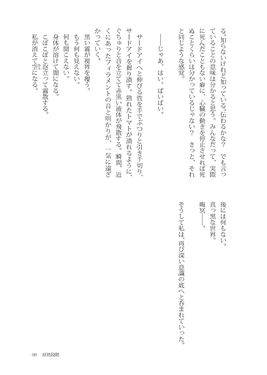 る。知らないけれど知っている。伝わるかな？　でも言っ
ていることの意味は分かると思う。みんなだって、実際
に死んだこともない癖に、心臓の動きを停止させれば死
ぬことくらいは分かっているじゃない？　きっと、それ
と同じような感覚。
――じゃあ、はい。ばいばい。
サードアイへと伸びる枝を手でぶつりと引き千切り、
サードアイを握り潰す。熟れたトマトが潰れるように、
ぐちゅりと音を立てて赤黒い液体が飛散する。瞬間、近
くにあったフィラメントの音と明かりが、一気に遠ざ
かっていく。
黒い霧が視界を覆う。
もう何も見えない。
何も聞こえない。
身体が溶けて闇になる。
こぽこぽと泡立って霧散する。
私が消えて空になる。
後には何もない。
真っ黒な世界。
晦冥――。
そうして私は、再び深い意識の底へと呑まれていった。